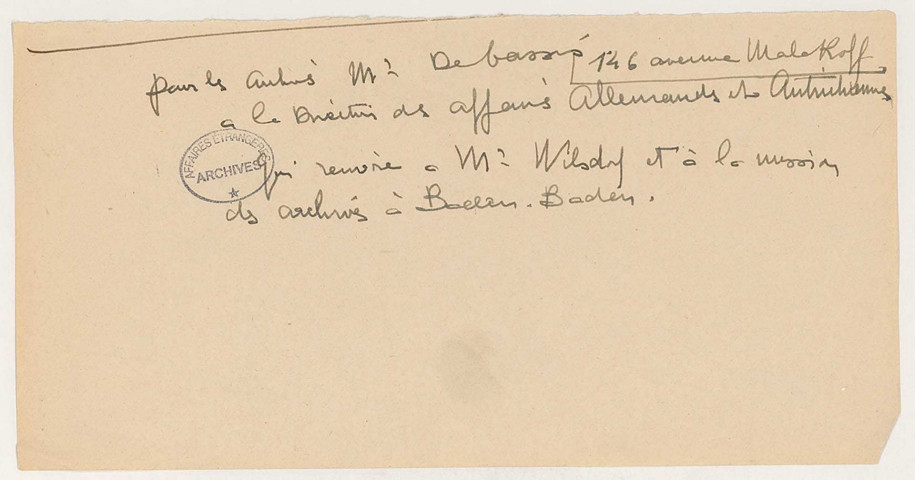 pour les autres Mr Debassis 146 avenue Malakoff
a la Direction des affaires Allemandes et Autrichiennes
AFFAIRES ETRANGERES
ARCHIVES
qui renvoie a Mr et à la mission
des archives à Baden-Baden.